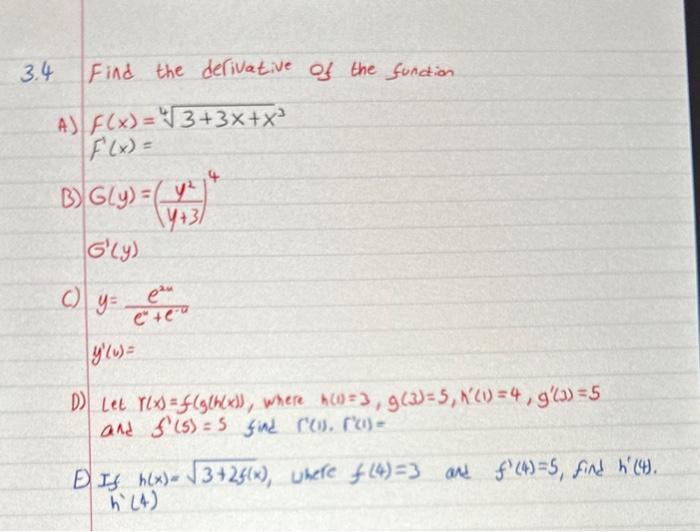 3.4 Find the derivative of the function
A) F(x) = ∜(3+3x+x³)
F'(x) =
B) G(y) = (y²/(y+3))⁴
G'(y)
C) y = e²ᵘ/(eᵘ+e⁻ᵘ)
y'(u) =
D) Let r(x) = f(g(h(x)), where h(1)=3, g(3)=5, h'(1)=4, g'(3)=5
and f'(5) = 5 find r'(1). r'(1) =
E) If h(x) = √(3+2f(x)), where f(4)=3 and f'(4)=5, find h'(4).
h'(4)